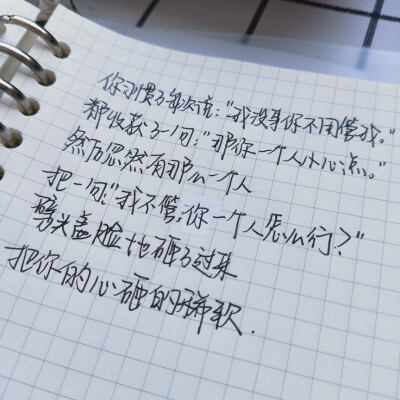 你习惯了每次说:"我没事你不用管我。"
都收获了一句:"那你一个人小心点。"
然后忽然有那么一个人
把一句:"我不管,你一个人怎么行?"
劈头盖脸地砸了过来
把你的心砸的稀软.